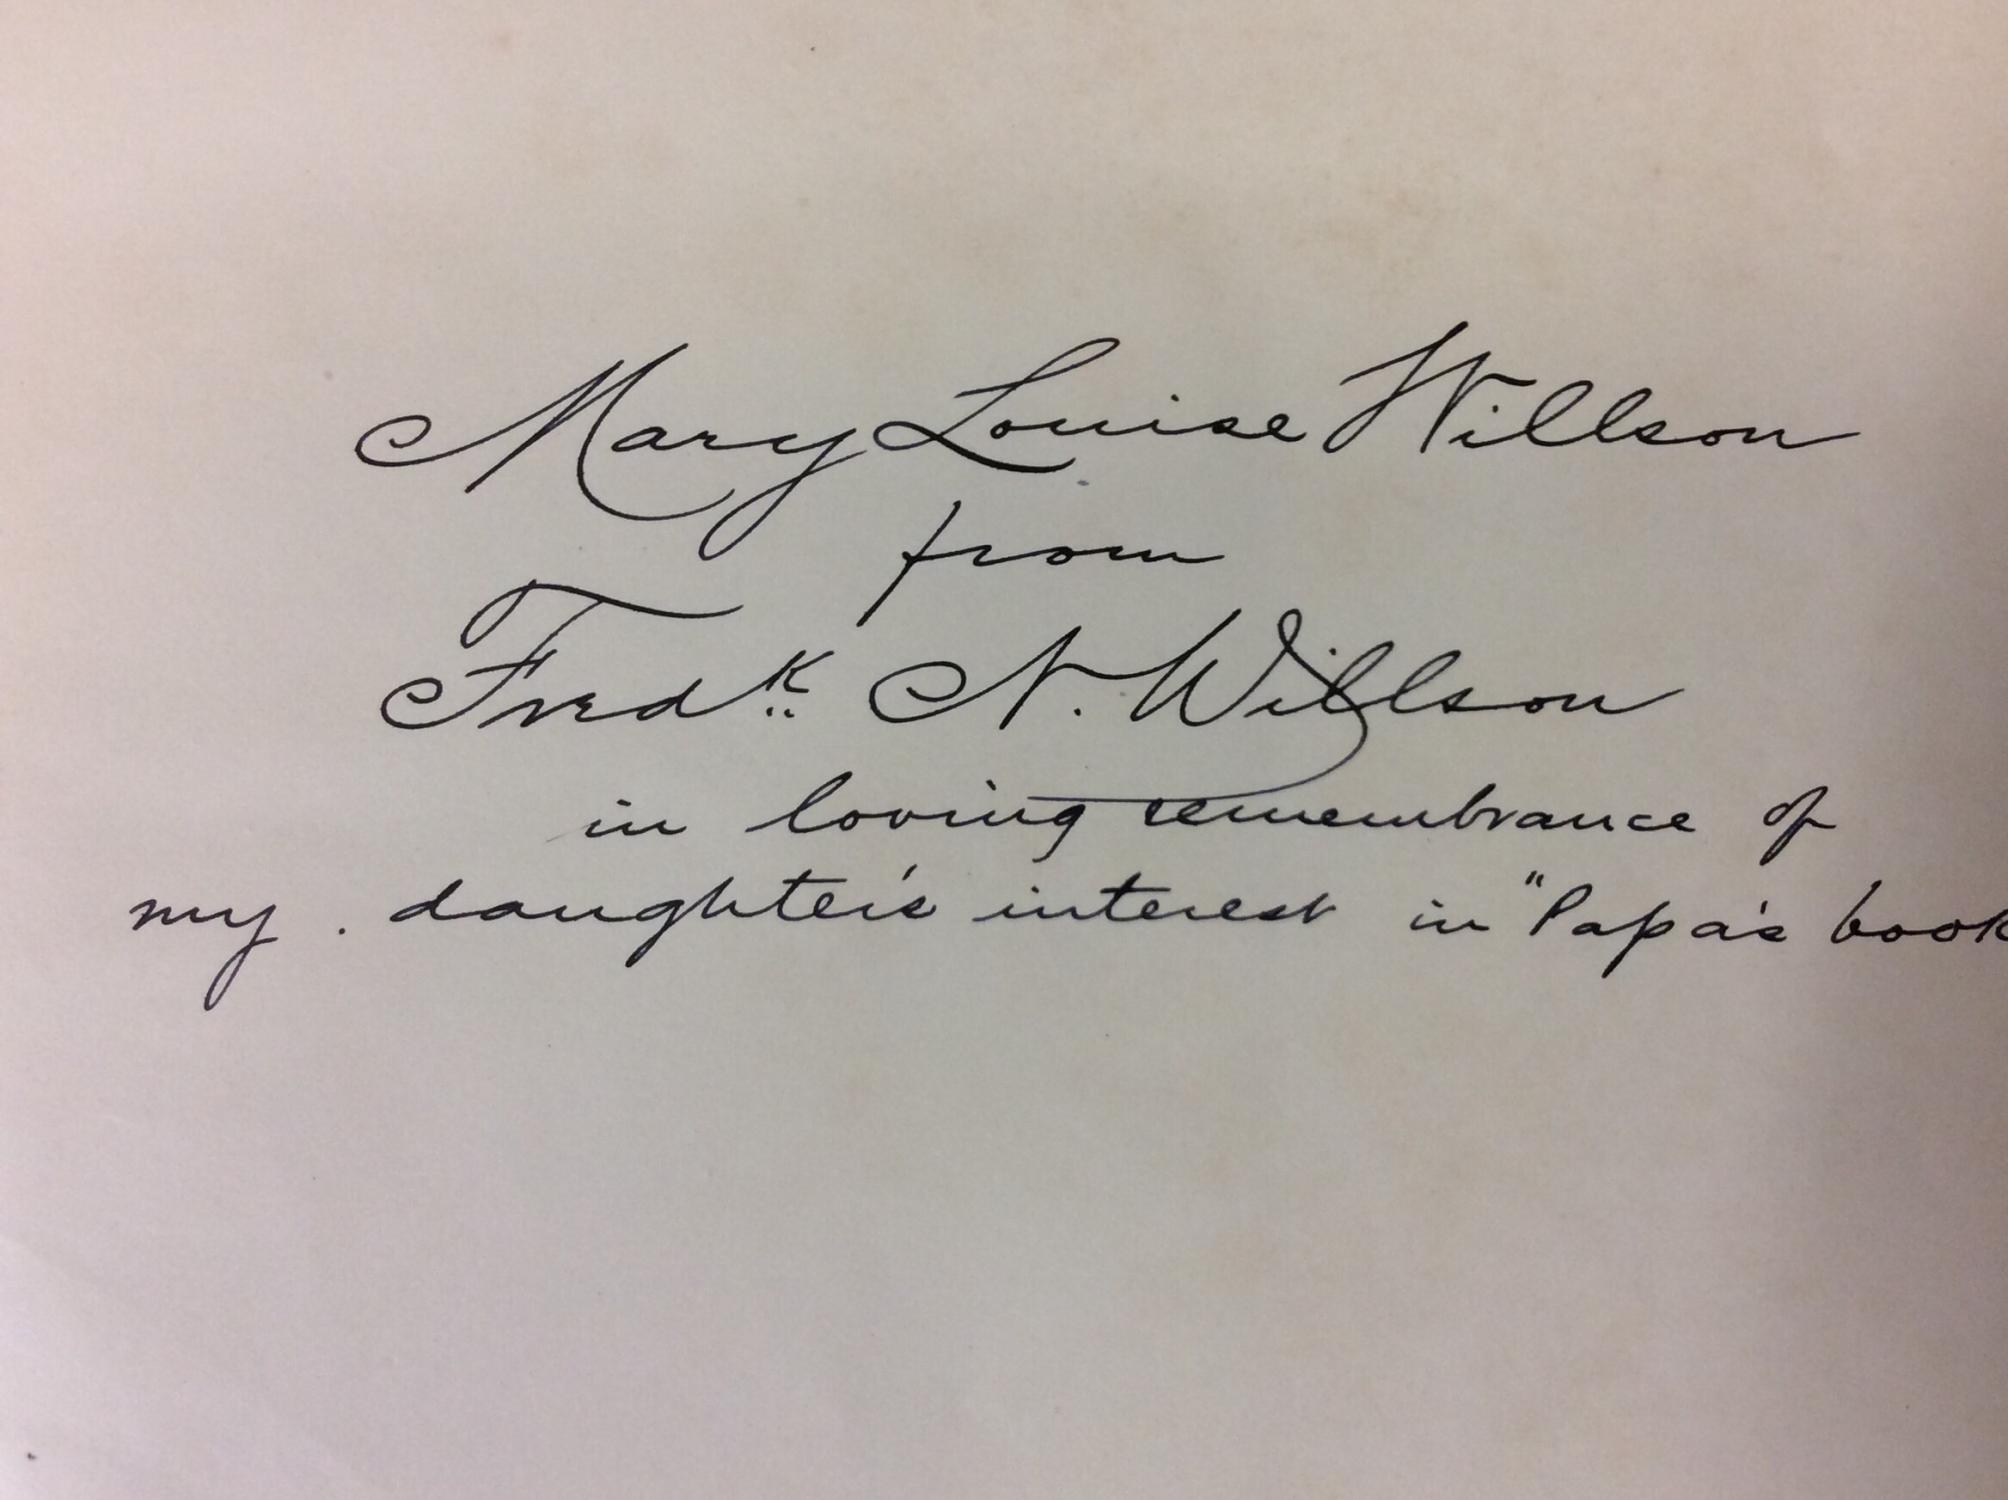 Mary Louise Willson
from
Fredk N. Willson
in loving remembrance of
my . daughter's interest in "Papa's book